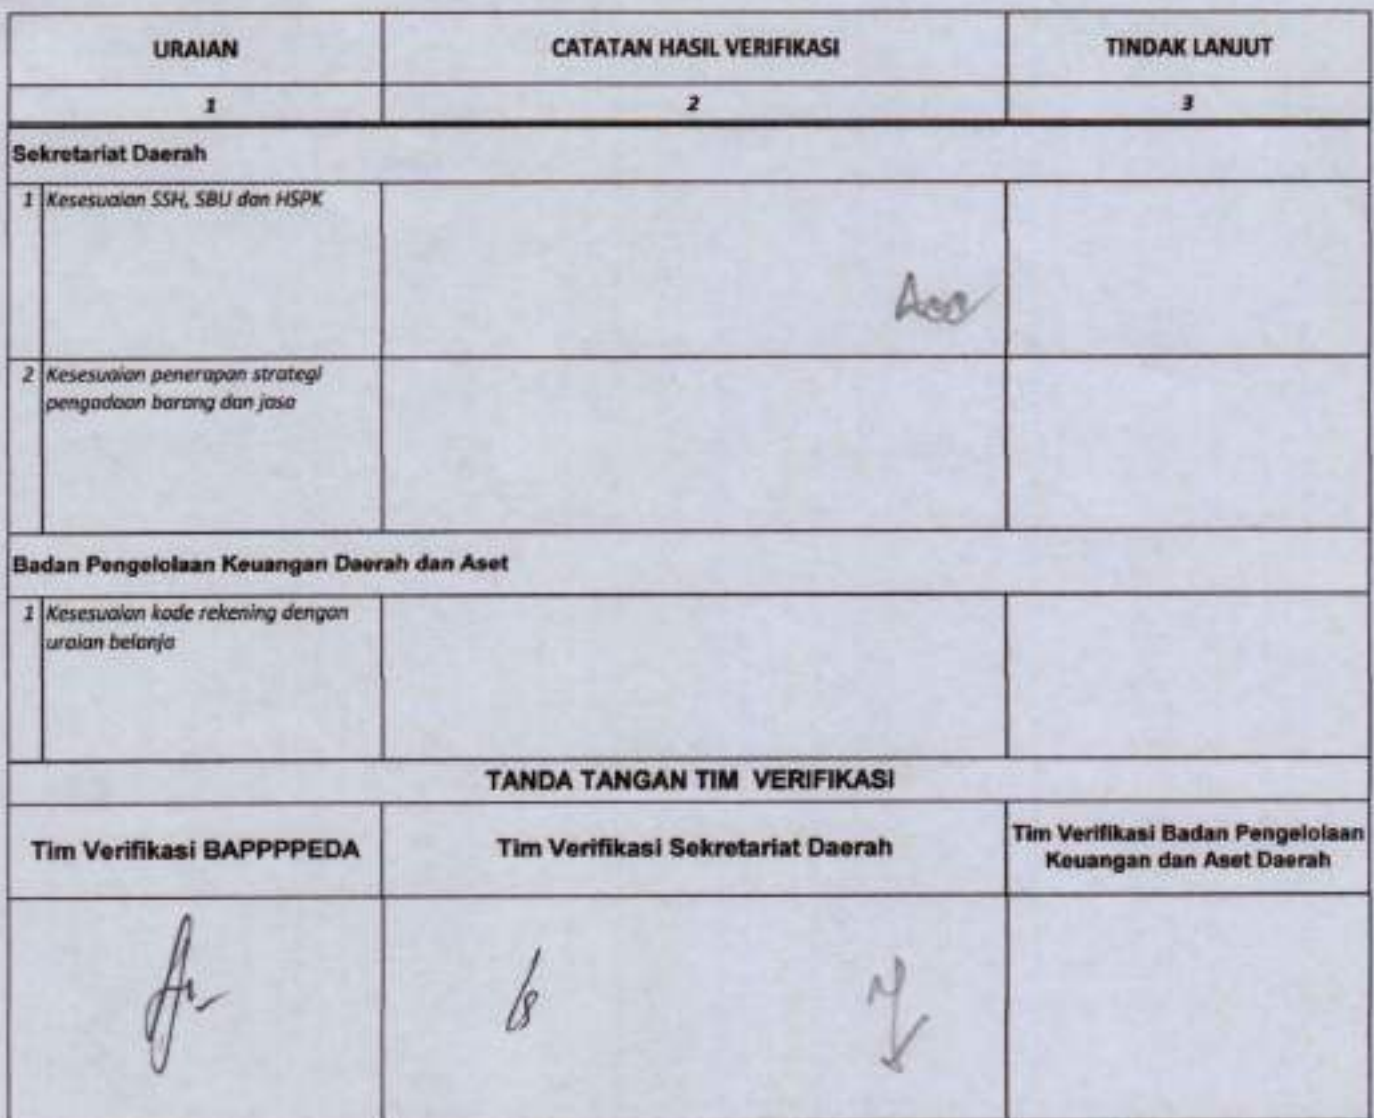 URAIAN CATATAN HASIL VERIFIKASI TINDAK LANJUT
1 2 3
Sekretariat Daerah
1 Kesesuaian SSH, SBU dan HSPK
Acc
2 Kesesuaian penerapan strategi
pengadaan barang dan jasa
Badan Pengelolaan Keuangan Daerah dan Aset
1 Kesesuaian kode rekening dengan
uraian belanja
TANDA TANGAN TIM VERIFIKASI
Tim Verifikasi BAPPPPEDA
Tim Verifikasi Sekretariat Daerah
Tim Verifikasi Badan Pengelolaan
Keuangan dan Aset Daerah